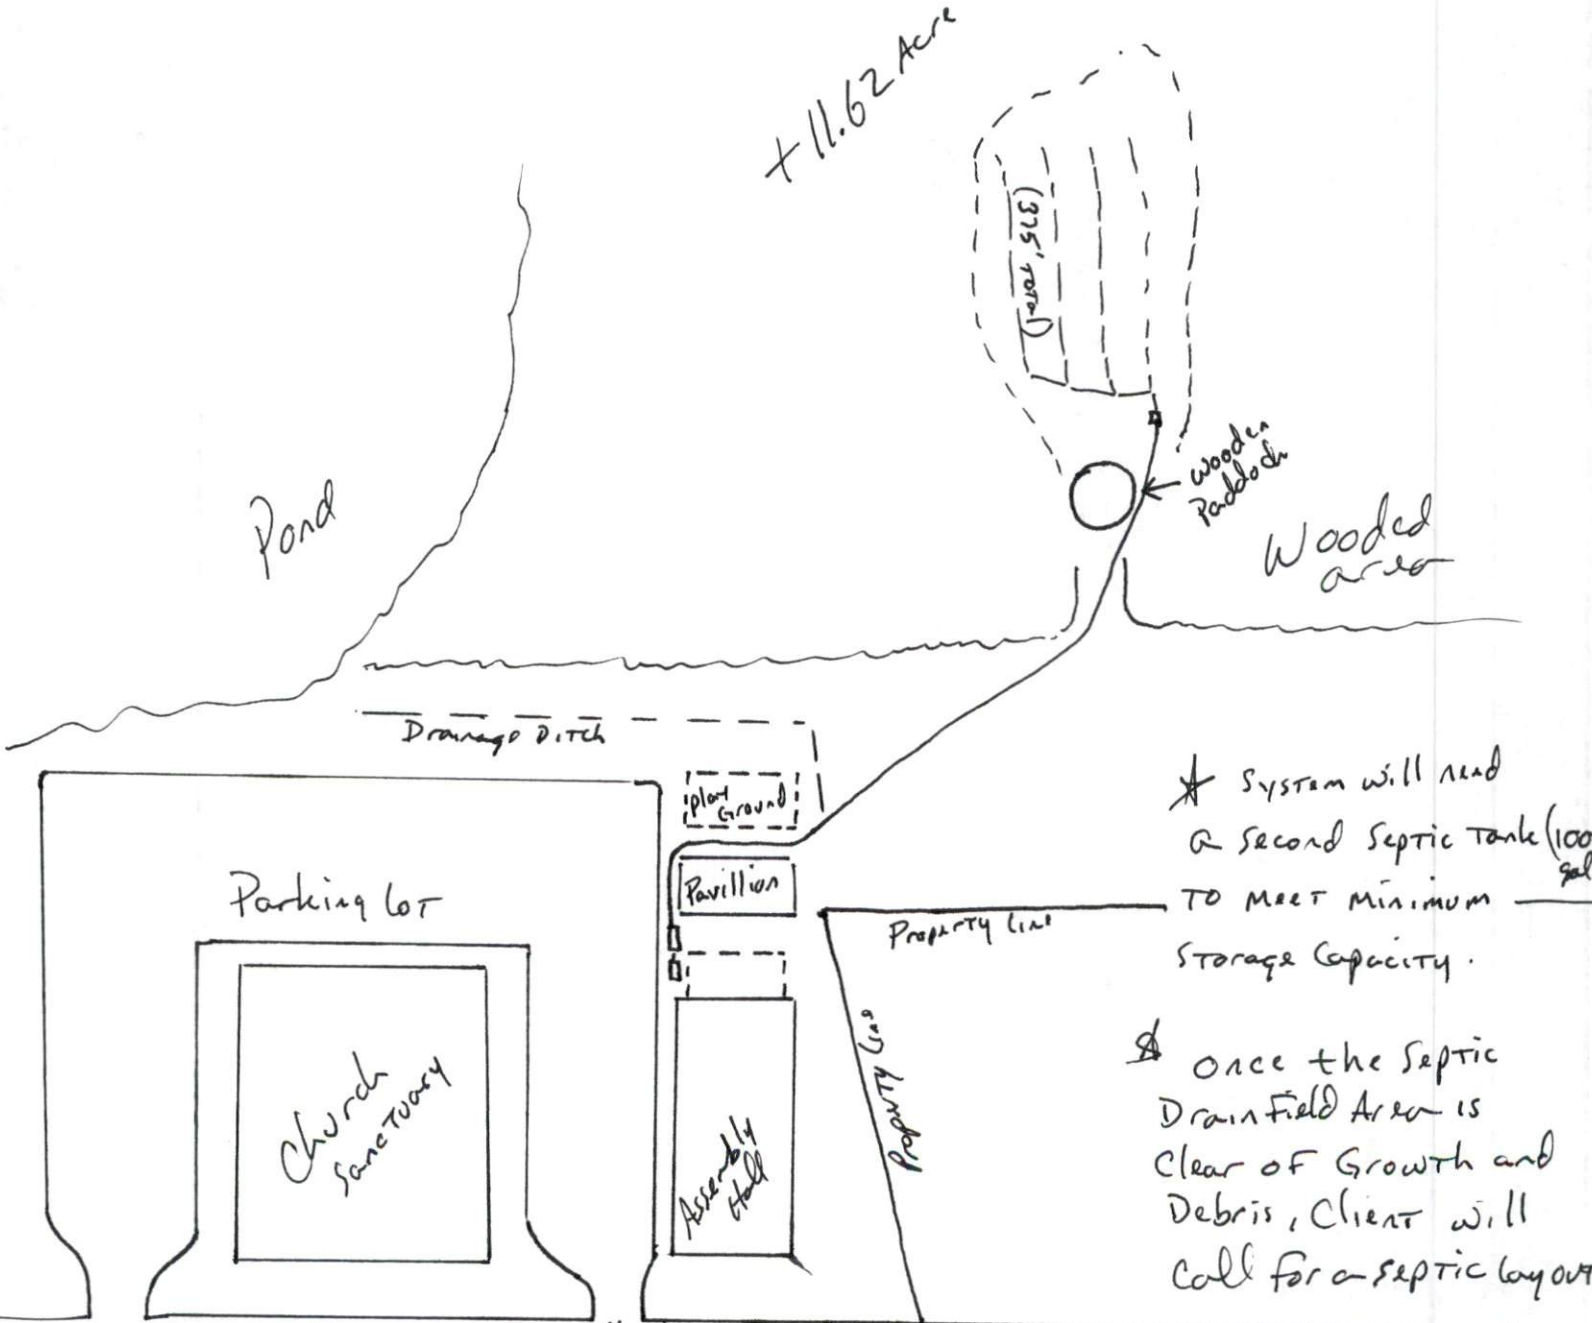 +11.62 Acre
(375' Total)
Wooden
Paddock
Pond
Wooded
area
Drainage Ditch
play
Ground
Pavillion
Parking Lot
Church
Sanctuary
Assembly
Hall
Property Line
Property Line
* System will need
a second Septic Tank (100
gal
To Meet Minimum
Storage Capacity.
* once the Septic
Drainfield Area is
Clear of Growth and
Debris, Client will
Call for a septic layout